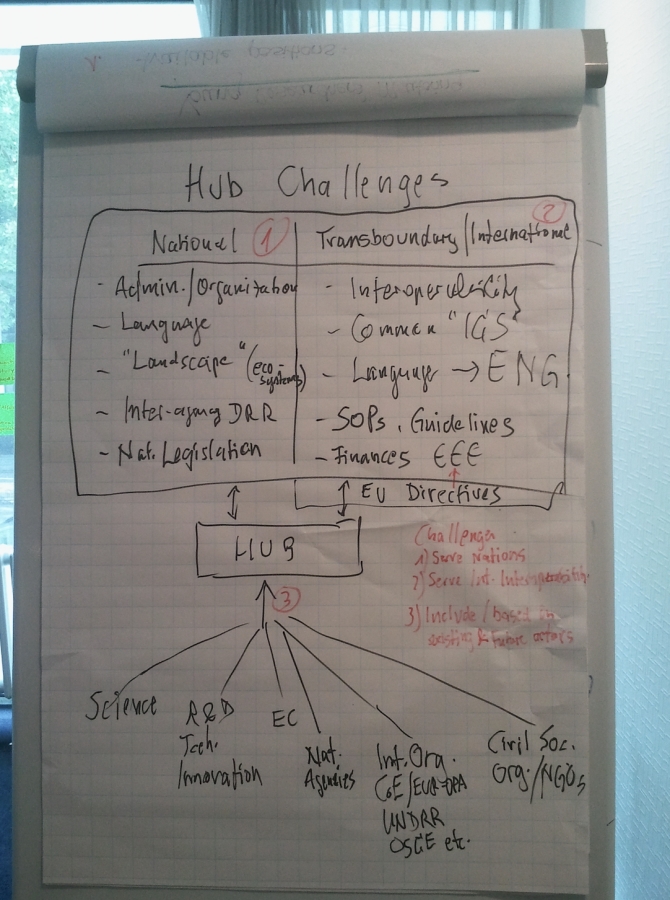 Available positions
Hub Challenges
National 1
- Admin./Organization
- Language
- "Landscape" (eco-systems)
- Inter-agency DRR
- Nat. Legislation
Transboundary/International 2
- Interoperability
- Common "ICS"
- Language → ENG
- SOPs, Guidelines
- Finances €€€
EU Directives
HUB
3
Challenges
1) Serve Nations
2) Serve Int. Interoperability
3) Include/based in
existing & future actors
Science
R&D
Tech.
Innovation
EC
Nat.
Agencies
Int. Org.
CoE/EUR-OPA
UNDRR
OSCE etc.
Civil Soc.
Org./NGOs